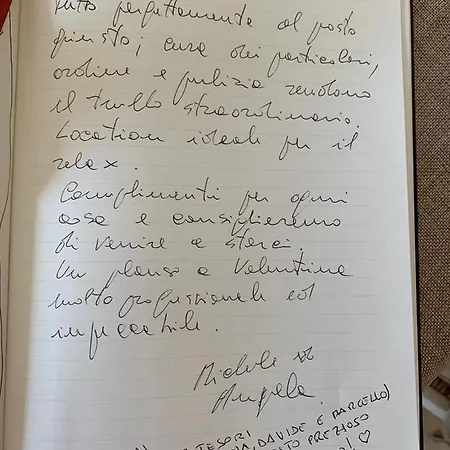 tutto perfettamente al posto
giusto; cura dei particolari,
ordine e pulizia rendono
il trullo straordinario.
Location ideale per il
relax.
Complimenti per ogni
cosa e consiglieremo
di venire a starci.
Un plauso a Valentina
molto professionale ed
impeccabile.
Michele
Angela
TESORI
DAVIDE E MARCELLO)
PREZIOSO
! ♡